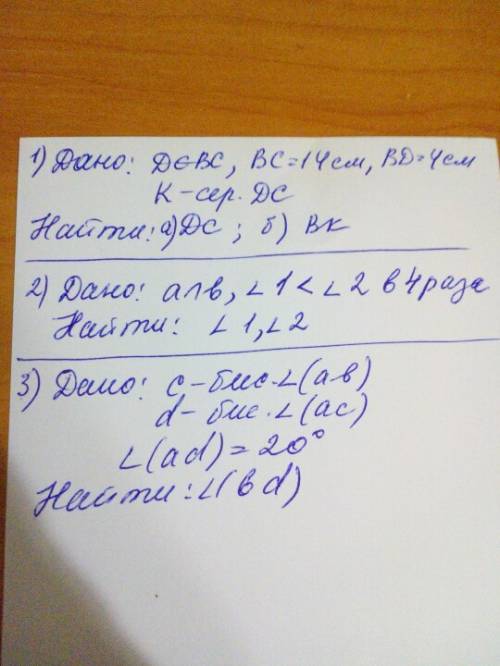 1) Дано: D∈BC, BC=14см, BD=4см
K-сер. DC
Найти: а) DC; б) BK
2) Дано: a∩в, ∠1<∠2 в 4 раза
Найти: ∠1, ∠2
3) Дано: c-бис. ∠(aв)
d-бис. ∠(ac)
∠(ad)=20°
Найти: ∠(вd)